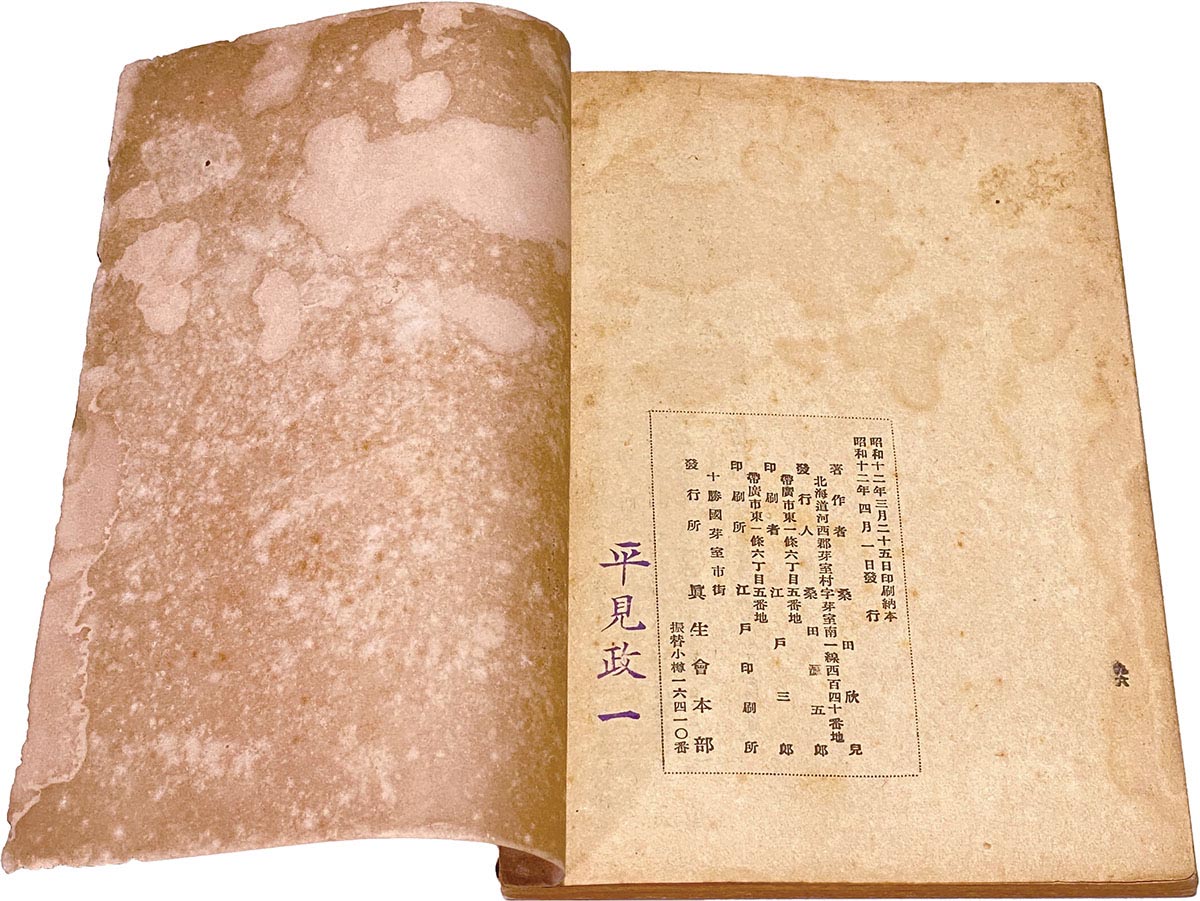 九六
昭和十二年三月二十五日印刷納本
昭和十二年四月一日發行
著作者 桑田欣兒
北海道河西郡芽室村字芽室南一線西百四十番地
發行人 桑田源五郎
帶廣市東一條六丁目五番地
印刷者 江戶三郎
帶廣市東一條六丁目五番地
印刷所 江戶印刷所
十勝國芽室市街
發行所 眞生會本部
振替小樽一六四一〇番
平見政一